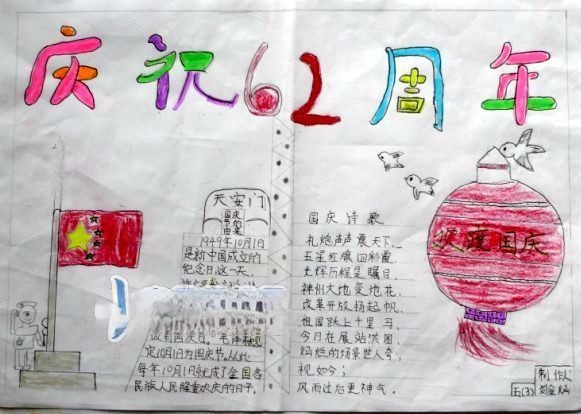 庆祝62周年
天安门
国庆
节的
由来
1949年10月1日
是新中国成立的
纪念日,这一天,
定10月1日为国庆节。从此
每年10月1日就成了全国各
民族人民隆重欢庆的日子。
国庆诗歌
礼炮声声震天下,
五星红旗回彩霞,
光辉历程是瞩目,
神州大地变地花,
改革开放扬起帆,
祖国跃上十里马
今日在展站洪图
灿烂的场景世人夸,
视如今;
风雨过后更神气。
欢度国庆
制作人
五(3)